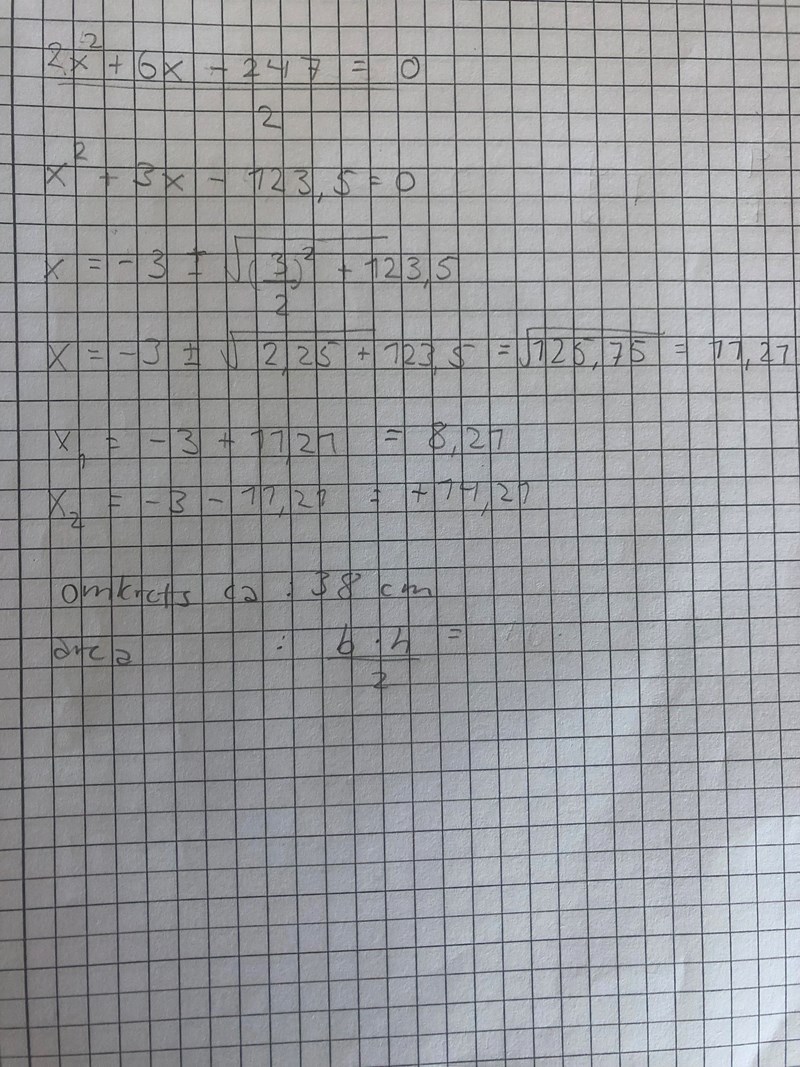 2x² + 6x - 247 = 0
2
x² + 3x - 123,5 = 0
x = -3 ± √(3/2)² + 123,5
x = -3 ± √2,25 + 123,5 = √125,75 = 11,21
x₁ = -3 + 11,21 = 8,21
x₂ = -3 - 11,21 = +14,21
omkrets ca : 38 cm
area : b·h/2 =